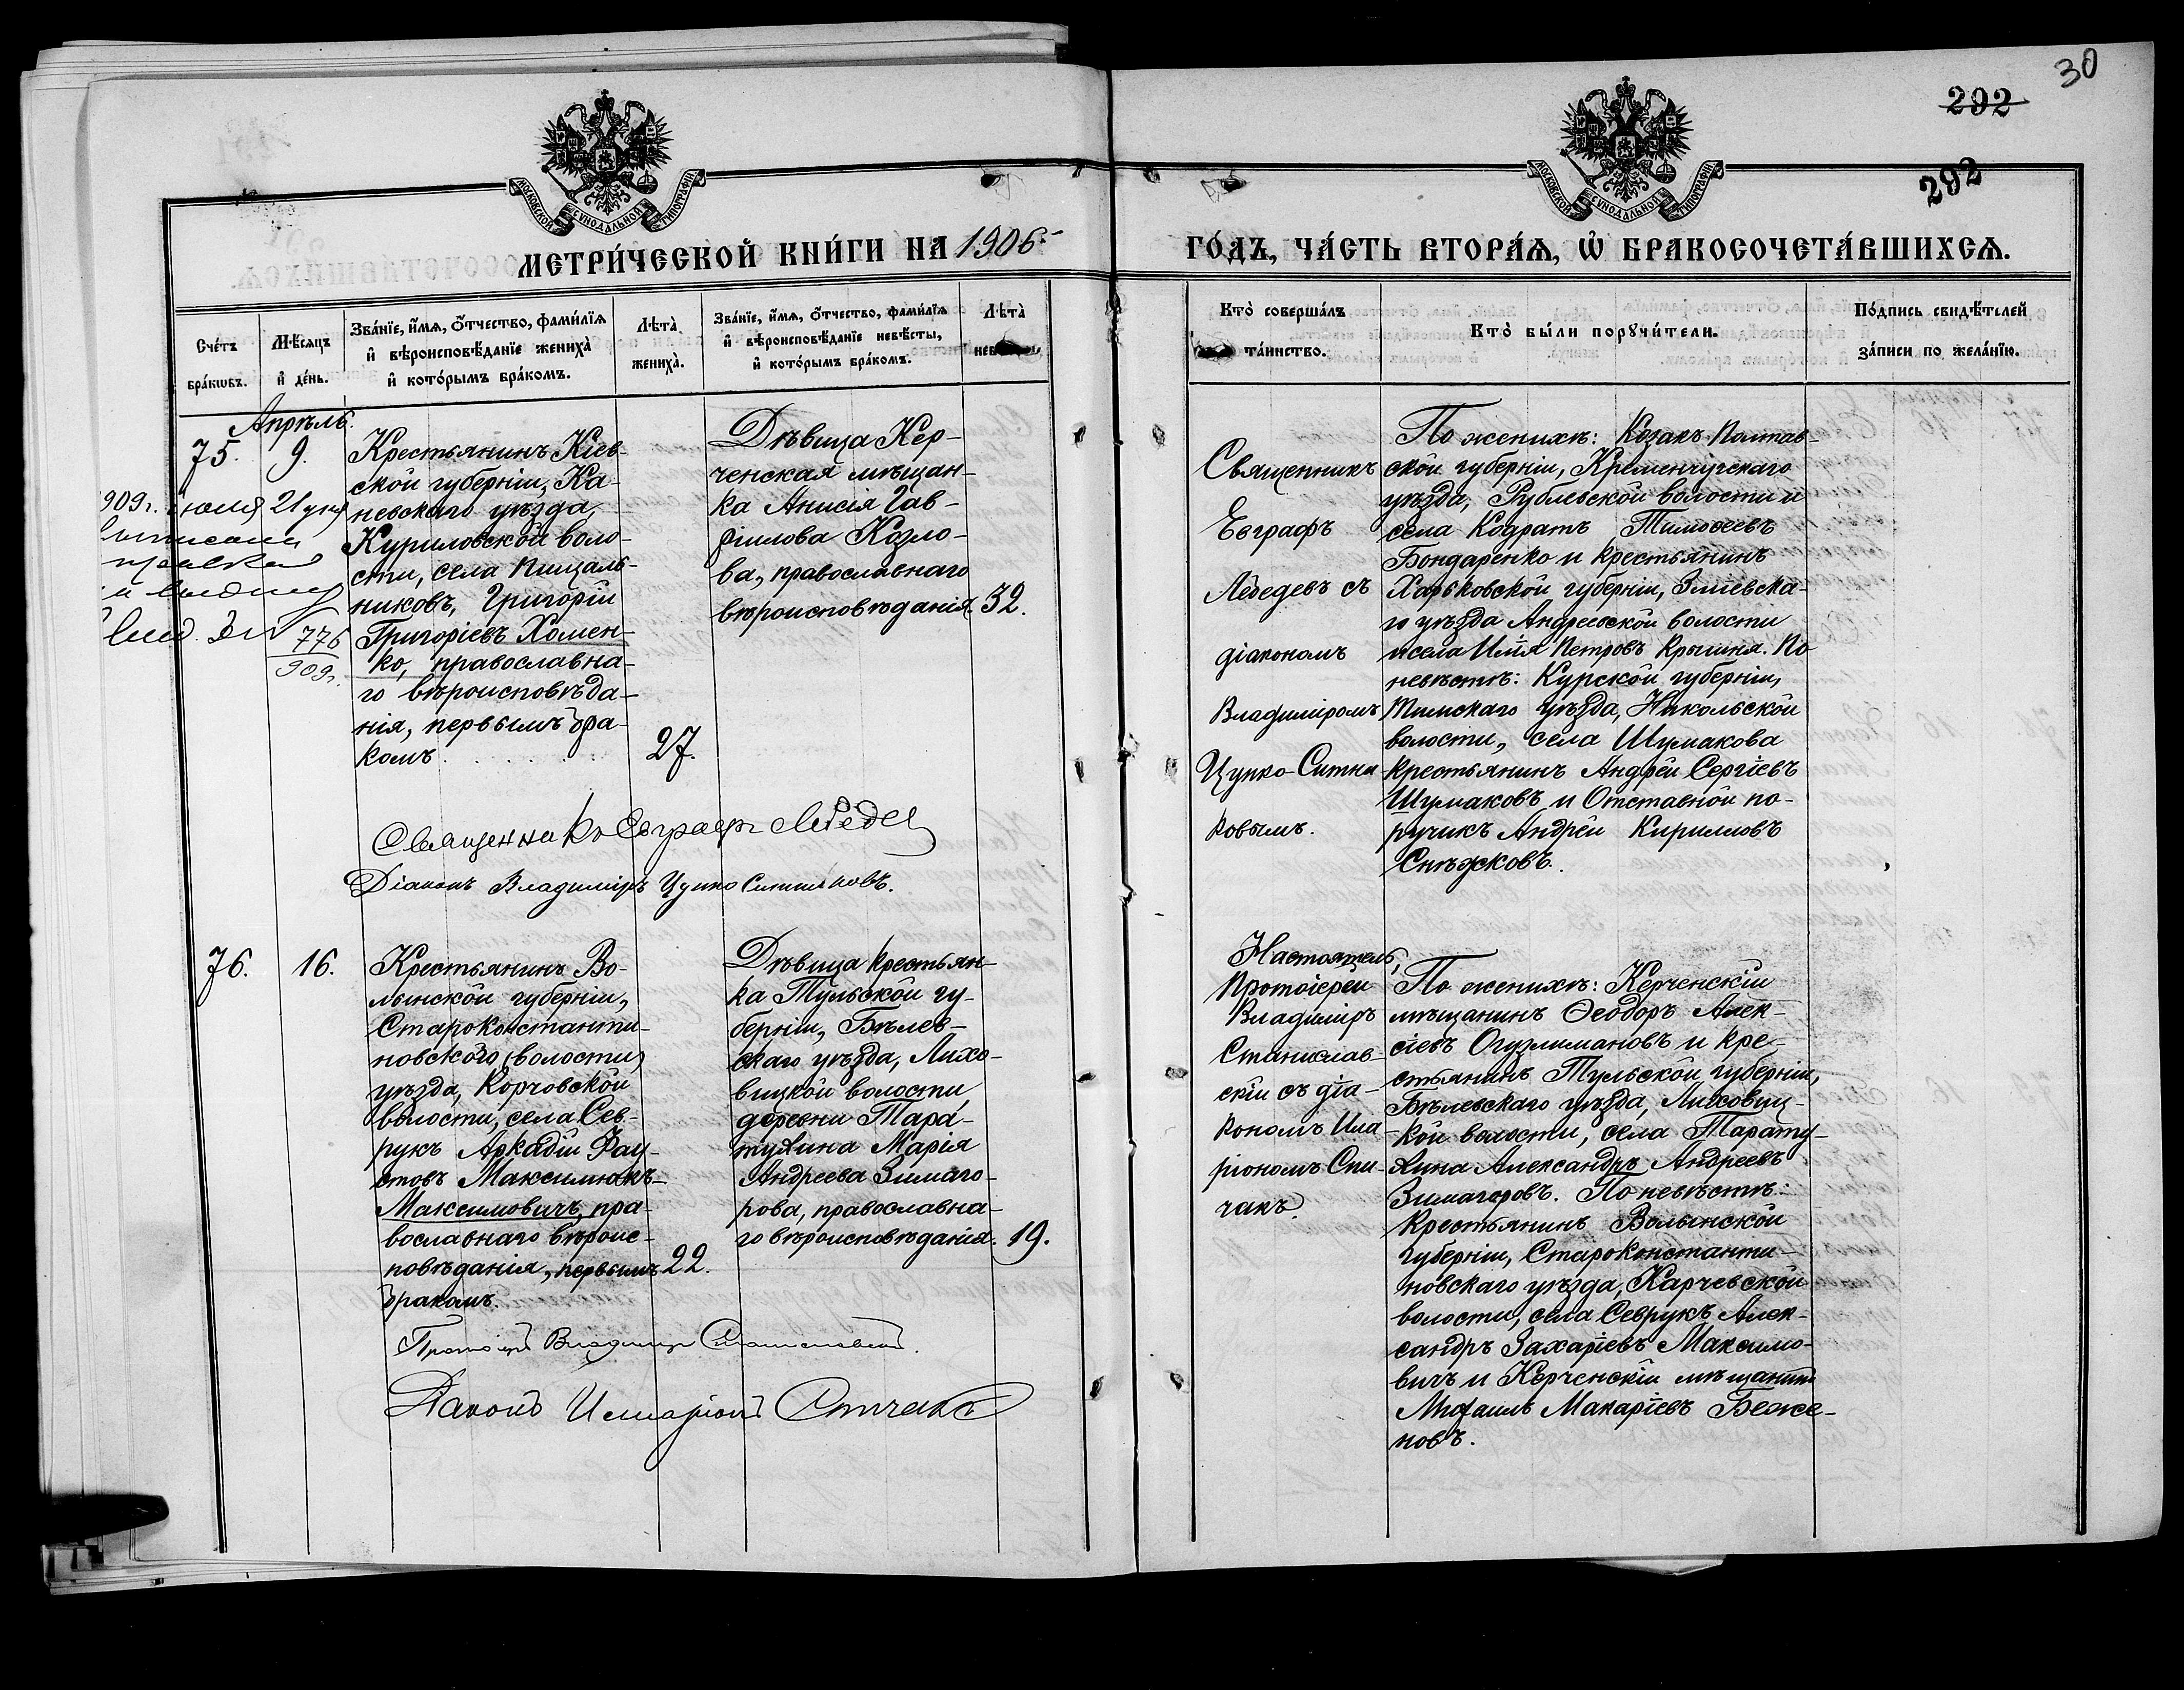 30
292
292
МОСКОВСКОЙ СѴНОДАЛЬНОЙ ТИПОГРАФІИ
МОСКОВСКОЙ СѴНОДАЛЬНОЙ ТИПОГРАФІИ
МЕТРИ́ЧЕСКОЙ КНИ́ГИ НА 1906 г
ГО́ДЪ, ЧА́СТЬ ВТОРА́Я, Ѡ БРАКОСОЧЕТА́ВШИХСЯ.
Сче́тъ
бра́кѡвъ.
Мѣ́сяцъ
и де́нь.
Зва́нїе, и́мя, ѻ́тчество, фами́лїя
и вѣроисповѣ́данїе жениха̀
и кото́рымъ бра́комъ.
Лѣта̀
жениха̀.
Зва́нїе, и́мя, ѻ́тчество, фами́лїя
и вѣроисповѣ́данїе невѣ́сты,
и кото́рымъ бра́комъ.
Лѣта̀
Кто̀ соверша́лъ
та́инство.
Кто̀ бы́ли порꙋчи́тели.
По́дпись свидѣ́телей
за́писи по жела́нїю.
Апрѣль.
75.
9.
909 г. іюля 21 дня
776
909 г.
Крестьянинъ Кіев-
ской губерніи, Ка-
невскаго уѣзда,
Куриловской воло-
сти, села Пищаль-
никовъ, Григорій
Григоріевъ Хомен-
ко, православна-
го вѣроисповѣда-
нія, первымъ бра-
комъ
27.
Дѣвица Кер-
ченская мѣщан-
ка Анисія Гав-
ріилова Козло-
ва, православнаго
вѣроисповѣданія.
32.
Священникъ
Евграфъ
Лебедевъ съ
діакономъ
Владиміромъ
Цупко-Ситни-
ковымъ.
По женихѣ: Козакъ Полтав-
ской губерніи, Кременчугскаго
уѣзда, Рублевской волости и
села Кодратъ Тимоѳеевъ
Бондаренко и крестьянинъ
Харьковской губерніи, Зміевска-
го уѣзда Андреевской волости
и села Илія Петровъ Крышня. По
невѣстѣ: Курской губерніи,
Тимскаго уѣзда, Никольской
волости, села Шумакова
крестьянинъ Андрей Сергіевъ
Шумаковъ и Отставной по-
ручикъ Андрей Кирилловъ
Снѣжковъ.
Священникъ Евграфъ Лебедев
Діаконъ Владиміръ Цупко Ситниковъ.
76.
16.
Крестьянинъ Во-
лынской губерніи,
Староконстанти-
новского (волости)
уѣзда, Корчовской
волости, села Сев-
рукъ Аркадій Фау-
стовъ Максимюкъ-
Максимовичъ, пра-
вославнаго вѣроис-
повѣданія, первымъ
бракомъ.
22.
Дѣвица крестьян-
ка Тульской гу-
берніи, Бѣлев-
скаго уѣзда, Лихо-
вицкой волости,
деревни Тара-
тухина Марія
Андреева Зимаго-
рова, православна-
го вѣроисповѣданія.
19.
Настоятель,
Протоіерей
Владиміръ
Станислав-
скій съ діа-
кономъ Ила-
ріономъ Спи-
чакъ.
По женихѣ: Керченскій
мѣщанинъ Ѳеодоръ Алек-
сіевъ Огузлимановъ и кре-
стьянинъ Тульской губерніи,
Бѣлевскаго уѣзда, Лиховиц-
кой волости, села Тарату-
хина Александръ Андреевъ
Зимагоровъ. По невѣстѣ:
Крестьянинъ Волынской
губерніи, Староконстанти-
новскаго уѣзда, Карчевской
волости, села Севрукъ Алек-
сандръ Захаріевъ Максимо-
вичъ и Керченскій мѣщанинъ
Михаилъ Макаріевъ Беже-
новъ.
Протоіер Владиміръ Станиславскій.
Діаконъ Иларіонъ Спичакъ